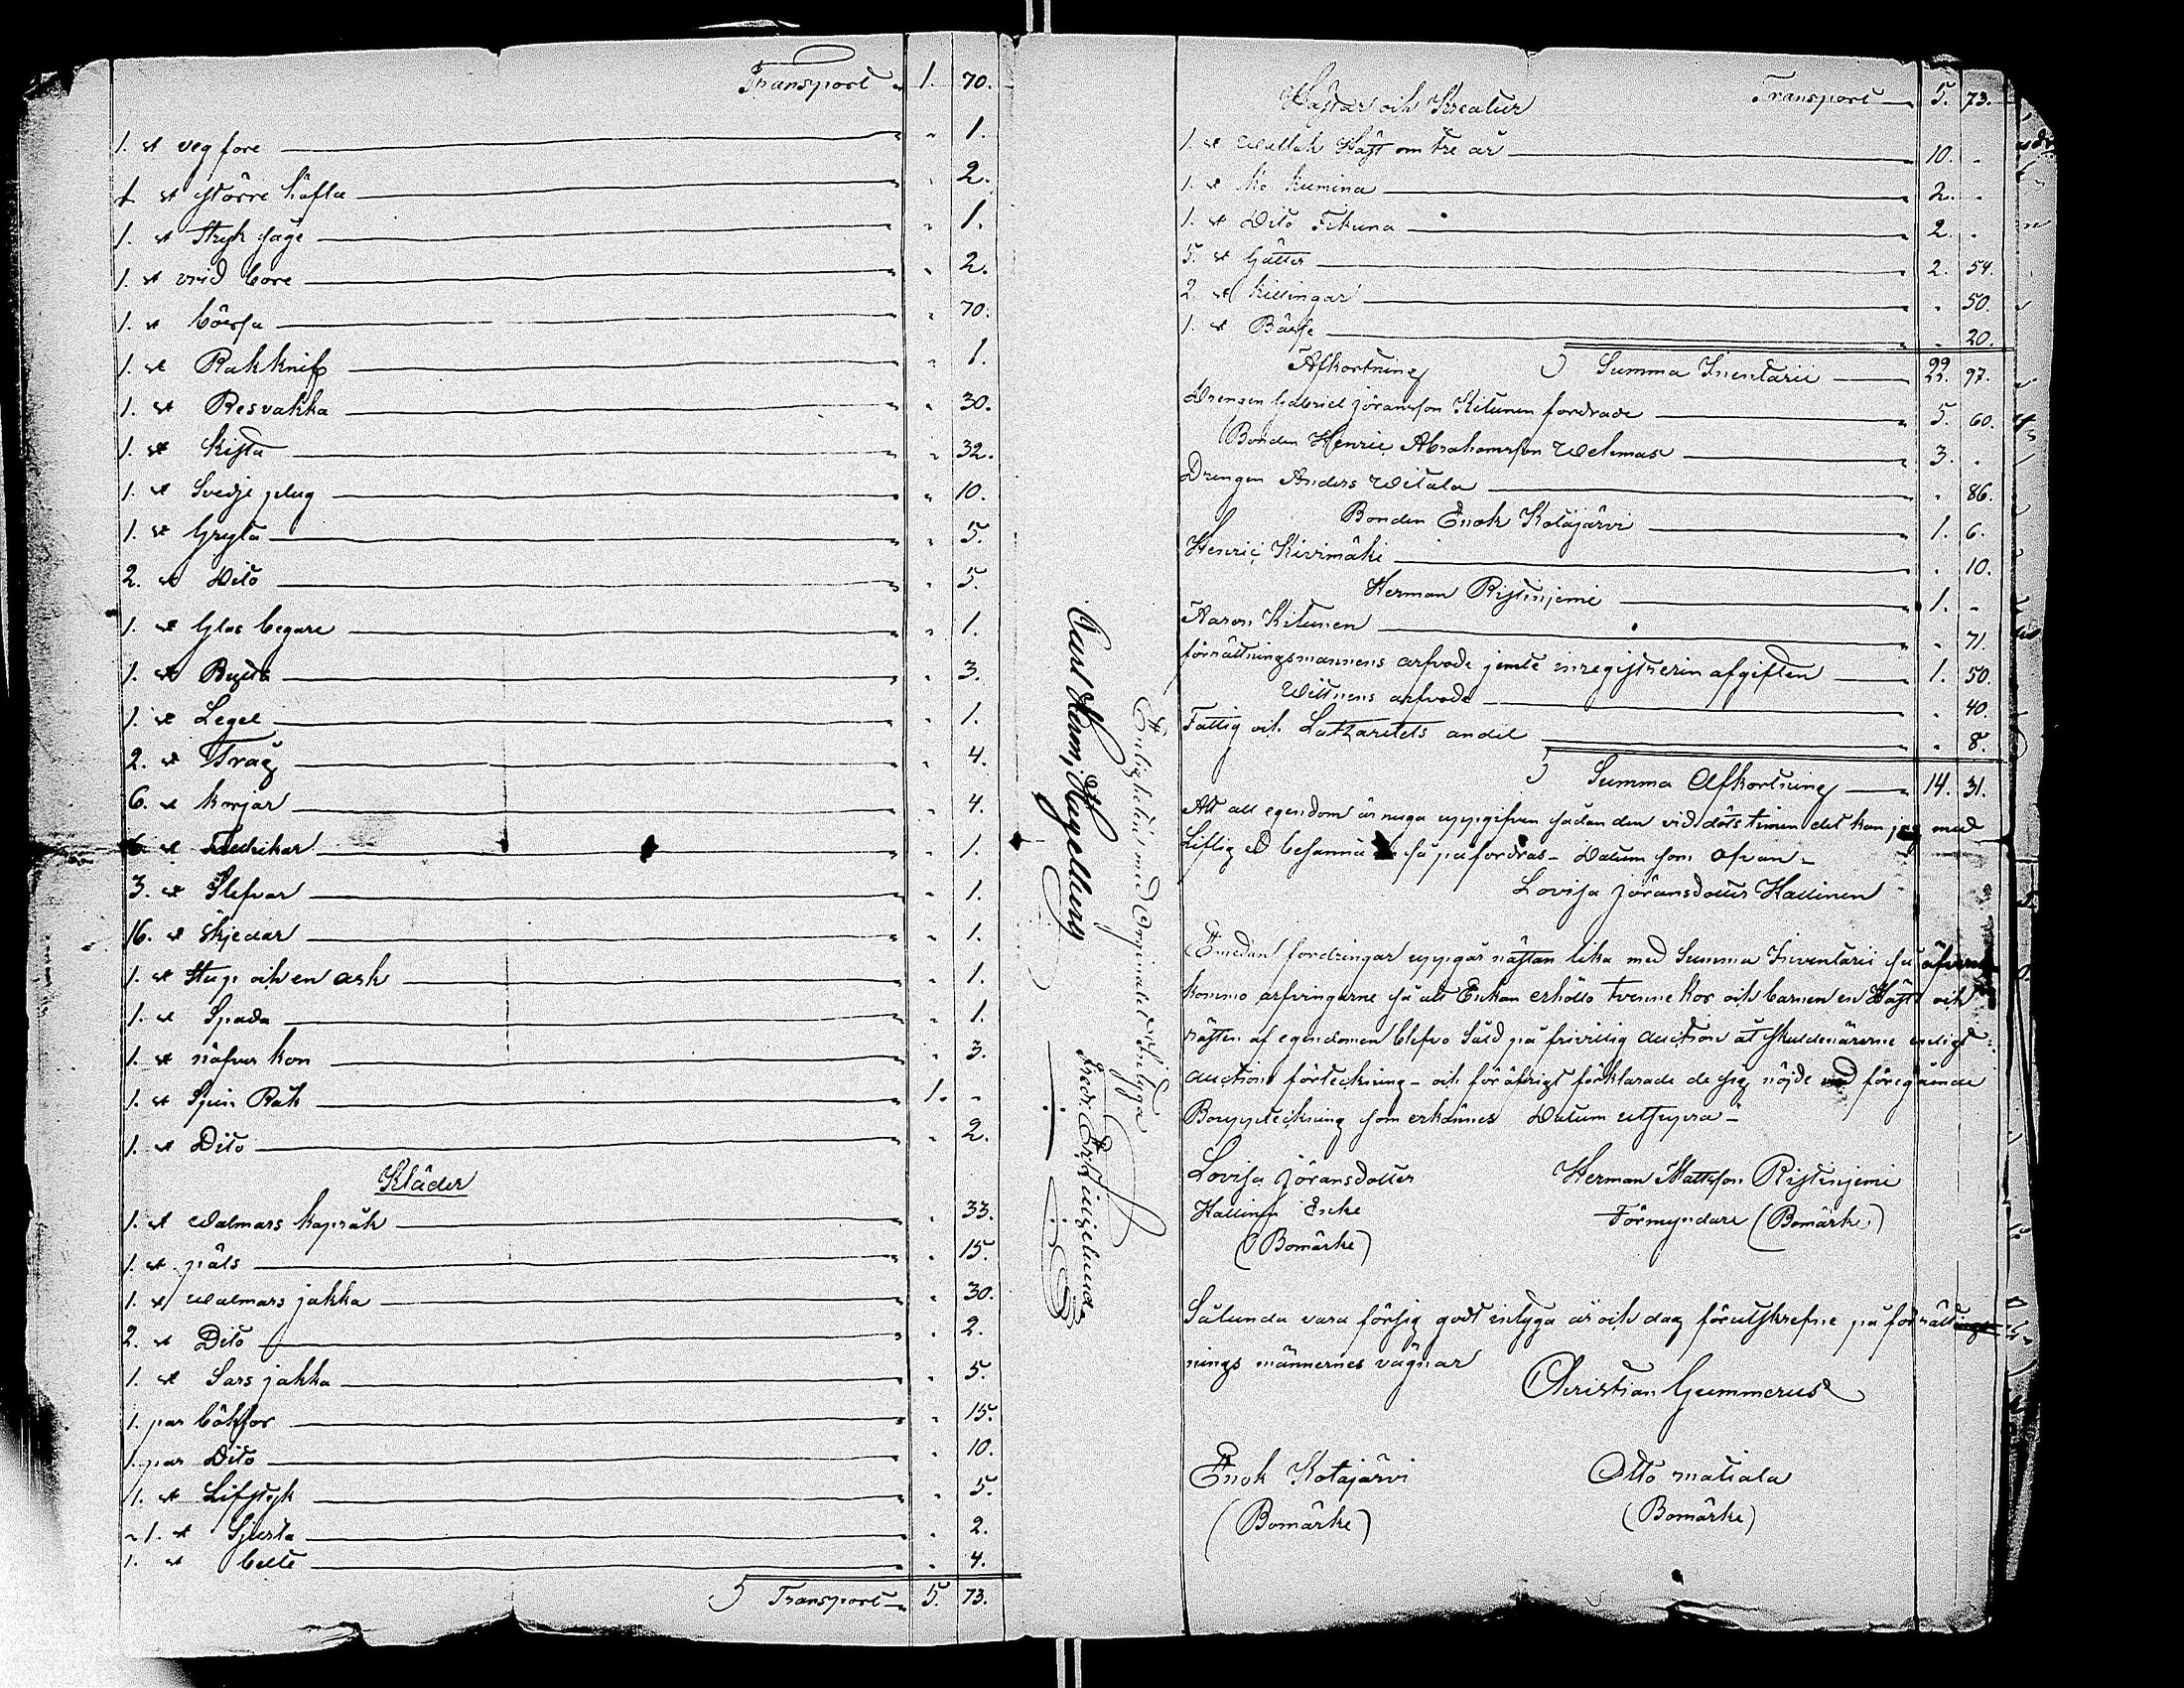 Transport 1. 70.
1. st veg fore " 1.
1 st större höfla " 2.
1. st Stryk såge " 1.
1. st vrid bore " 2.
1. st börsa " 70.
1. st Rakknif " 1.
1. st Resvakka " 30.
1. st kista " 32.
1. st Svedje plug " 10.
1. st Gryta " 5.
2. st Dito " 5.
1. st Glas begare " 1.
1. st Bytta " 3.
1. st Legel " 1.
2. st Tråg " 4.
6. st korjar " 4.
st " 1.
3. st Slefvar " 1.
16. st skjedar " 1.
1. st Stup och en ask " 1.
1. st Spada " 1.
1. st näfver kon " 3.
1. st Spin Råk 1. -
1. st Dito " 2.
Kläder
1. st walmars kapråk " 33.
1. st päls " 15.
1. st walmars jakka " 30.
2. st Dito " 2.
1. st Sars jakka " 5.
1. par böksor " 15.
1. par Dito " 10.
1. st Lifstyk " 5.
1. st Sjorta " 2.
1. st belte " 4.
Transport 5. 73.
Enligheten med Originalet Intyga
Carl Herm, Hagelberg
Fredr. Erk
Hästar och Kreatur Transport 5. 73.
1. st wallak Häst om tre år 10. -
1. st Ko kumina 2. -
1. st Dito Tikuna 2. -
5. st Gätter 2. 54.
2. st killingar " 50.
1. st Bässe " 20.
Afkortning Summa Inentarii 22. 97.
Drengen Gabriel Jöransson Kitunen fordrade 5. 60.
Bonden Henric Abrahamsson Wehmas 3. "
Drengen Anders Witala " 86.
Bonden Enok Kotajärvi 1. 6.
Henric Kivimäki " 10.
Herman Ristinjemi 1. -
Aaron Kitunen " 71.
förrättningsmannens arfvode jemte inregistrerin afgiften 1. 50.
Wittnens arfvode " 40.
Fattig och Latzaretets andel " 8.
Summa Afkortning 14. 31.
Att all egendom är noga uppgifven sådan den vid döts timen det kan jag med
Liflig ed besanna så påfordras - Datum som Ofvan -
Lovisa Jöransdotter Hallinen
Emedan fordringar uppgår nästan lika med Summa Inventarii så
kommo arfvingarne så att Enkan erhöllo tvenne Kor och barnen en Häst och
rästen af egendomen blefvo såld på frivillig Auction åt skuldenärerne enligt
Auctions förteckning - och för öfrigt förklarade de sig nöjde med föregående
Bouppteckning som erkännes Datum utsupra -
Lovisa Jöransdotter Herman Mattsson Ristinjemi
Hallinen Enke Förmyndare (Bomärke)
(Bomärke)
Sålunda vara försig godt intyga år och dag förutskrefne på förrätt
nings männernes vägnar
Christian Gummerus
Enok Kotajärvi Otto matiala
(Bomärke) (Bomärke)